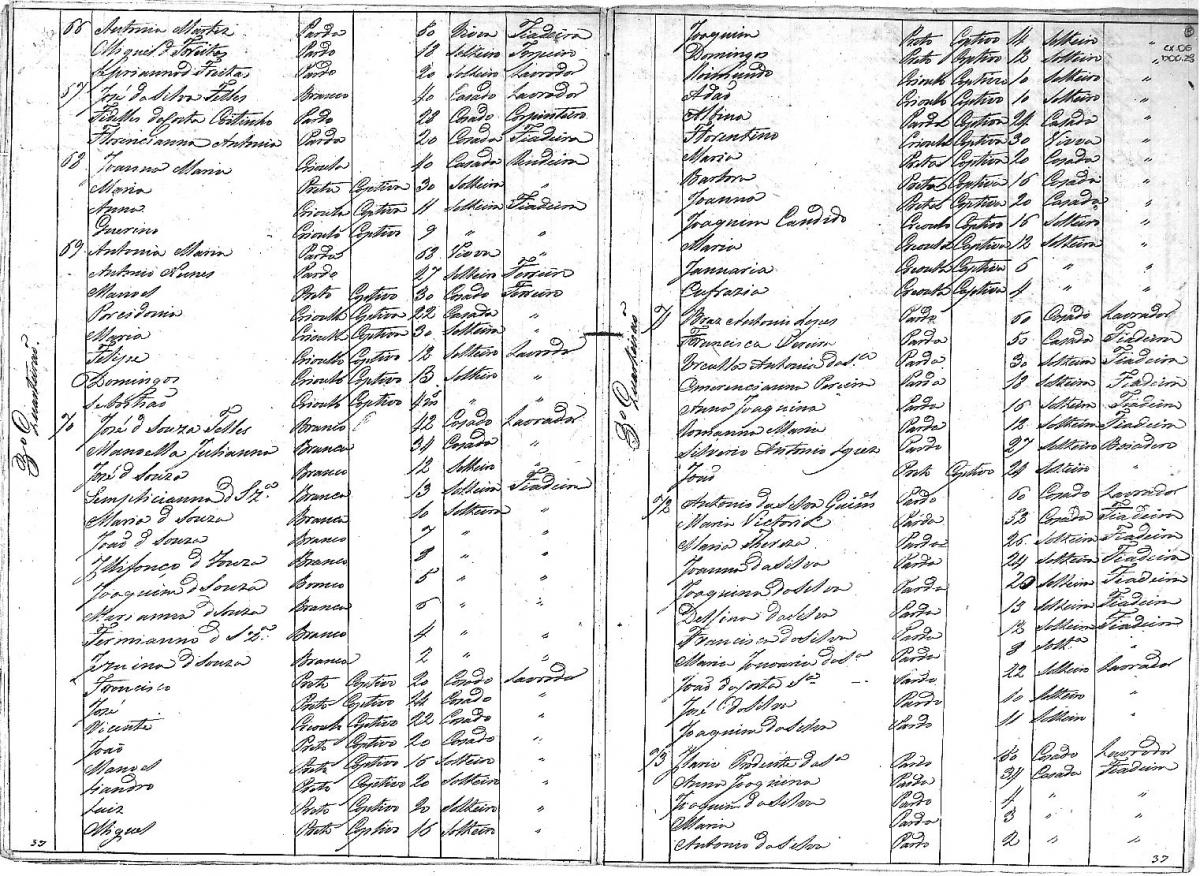 3º Quarteirão
66 Antonia Martiz Parda 50 Viuva Fiadeira
Miguel d Freitas Pardo 18 Solteiro Ferreiro
Sipriannod Freitas Pardo 20 Solteiro Lavrador
67 José da Silva Telles Branco 40 Casado Lavrador
Telles da Costa Coutinho Pardo 28 Casado Carpinteiro
Florencianna Antonia Parda 20 Casada Fiadeira
68 Joanna Maria Crioula 40 Casada Rendeira
Maria Preta Captiva 30 Solteira "
Anna Crioula Captiva 11 Solteira Fiadeira
Guerino Crioulo Captivo 9 " "
69 Antonia Maria Parda 68 Viuva "
Antonio Nunes Pardo 27 Solteiro Ferreiro
Manoel Preto Captivo 30 Casado Ferreiro
Porcidonia Crioula Captiva 22 Casada "
Maria Crioula Captiva 30 Solteira "
Fellipe Crioulo Captivo 12 Solteiro Lavrador
Domingos Crioulo Captivo 13 Solteiro "
Sebastião Crioulo Captivo " "
70 José d Souza Telles Branco 42 Casado Lavrador
Manoella Julianna Branca 34 Casada "
José d Souza Branco 12 Solteiro "
Simplicianna d Sza. Branca 13 Solteira Fiadeira
Maria d Souza Branca 10 Solteira "
João d Souza Branco 7 " "
Ildifonço d Souza Branco 8 " "
Joaquim d Souza Branco 5 " "
Marianna d Souza Branca 6 " "
Fermianno d Sza. Branco 4 " "
d Souza Branca 2 " "
Francisco Preto Captivo 20 Casado Lavrador
José Preto Captivo 24 Casado "
Vicente Crioulo Captivo 22 Casado "
João Preto Captivo 20 Casado "
Manoel Preto Captivo 16 Solteiro "
Liandro Preto Captivo 20 Solteiro "
Luiz Preto Captivo 20 Solteiro "
Miguel Preto Captivo 16 Solteiro "
37
3º Quarteirão
Joaquim Preto Captivo 14 Solteiro "
Domingos Preto Captivo 12 Solteiro "
Raimundo Crioulo Captivo 10 Solteiro "
Adão Crioulo Captivo 10 Solteiro "
Albina Parda Captiva 24 Casada "
Florentino Crioulo Captivo 30 Viuvo "
Maria Preta Captiva 20 Casada "
Barbora Preta Captiva 16 Casada "
Joanna Preta Captiva 20 Casada "
Joaquim Candido Crioulo Captivo 16 Solteiro "
Maria Crioula Captiva 12 Solteira "
Januaria Crioula Captiva 6 " "
Eufrazia Crioula Captiva 4 " "
71 Braz Antonio Lopes Pardo 60 Casado Lavrador
Francisca Pereira Parda 50 Casada Fiadeira
Antonia da Sa Parda 30 Solteira Fiadeira
Emerencianna Pereira Parda 18 Solteira Fiadeira
Anna Joaquina Parda 16 Solteira Fiadeira
Romanna Maria Parda 12 Solteira Fiadeira
Silverio Antonio Lopes Pardo 27 Solteiro Boiador
João Preto Captivo 24 Solteiro "
72 Antonio da Silva Guims Pardo 60 Casado Lavrador
Maria Victoria Parda 52 Casada Fiadeira
Maria Thereza Parda 26 Solteira Fiadeira
Joanna da Silva Parda 24 Solteira Fiadeira
Joaquina da Silva Parda 20 Solteira Fiadeira
Delfina da Silva Parda 13 Solteira Fiadeira
Francisca da Silva Parda 12 Solteira Fiadeira
Maria Januaria da Sa Parda 9 Solta "
João da Costa Sa Pardo 22 Solteiro Lavrador
José C da Silva Pardo 10 Solteiro "
Joaquim da Silva Pardo 11 Solteiro "
73 Ilario Prudente da Sa Pardo 50 Casado Lavrador
Anna Joaquina Parda 34 Casada Fiadeira
Joaquim da Silva Pardo 4 " "
Maria Parda 3 " "
Antonio da Silva Pardo 2 " "
37
CX.06
DOC.25